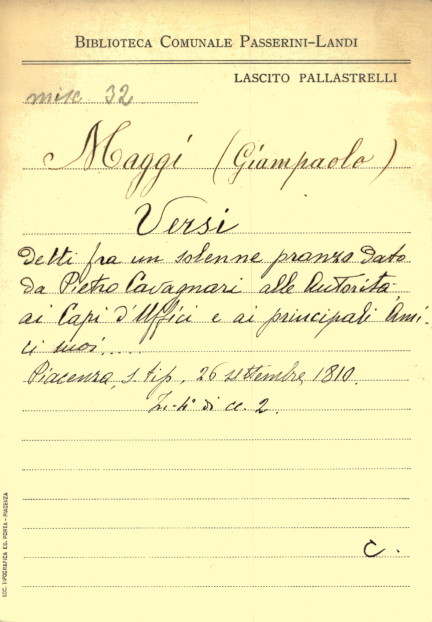 BIBLIOTECA COMUNALE PASSERINI-LANDI
LASCITO PALLASTRELLI
misc 32
Maggi (Giampaolo)
Versi
detti fra un solenne pranzo dato
da Pietro Cavagnari alle Autorità
ai Capi d'Uffici e ai principali Ami-
ci suoi.....
Piacenza, s. tip, 26 settembre, 1810.
In-4° di cc. 2.
C.
SOC. TIPOGRAFICA ED. PORTA - PIACENZA